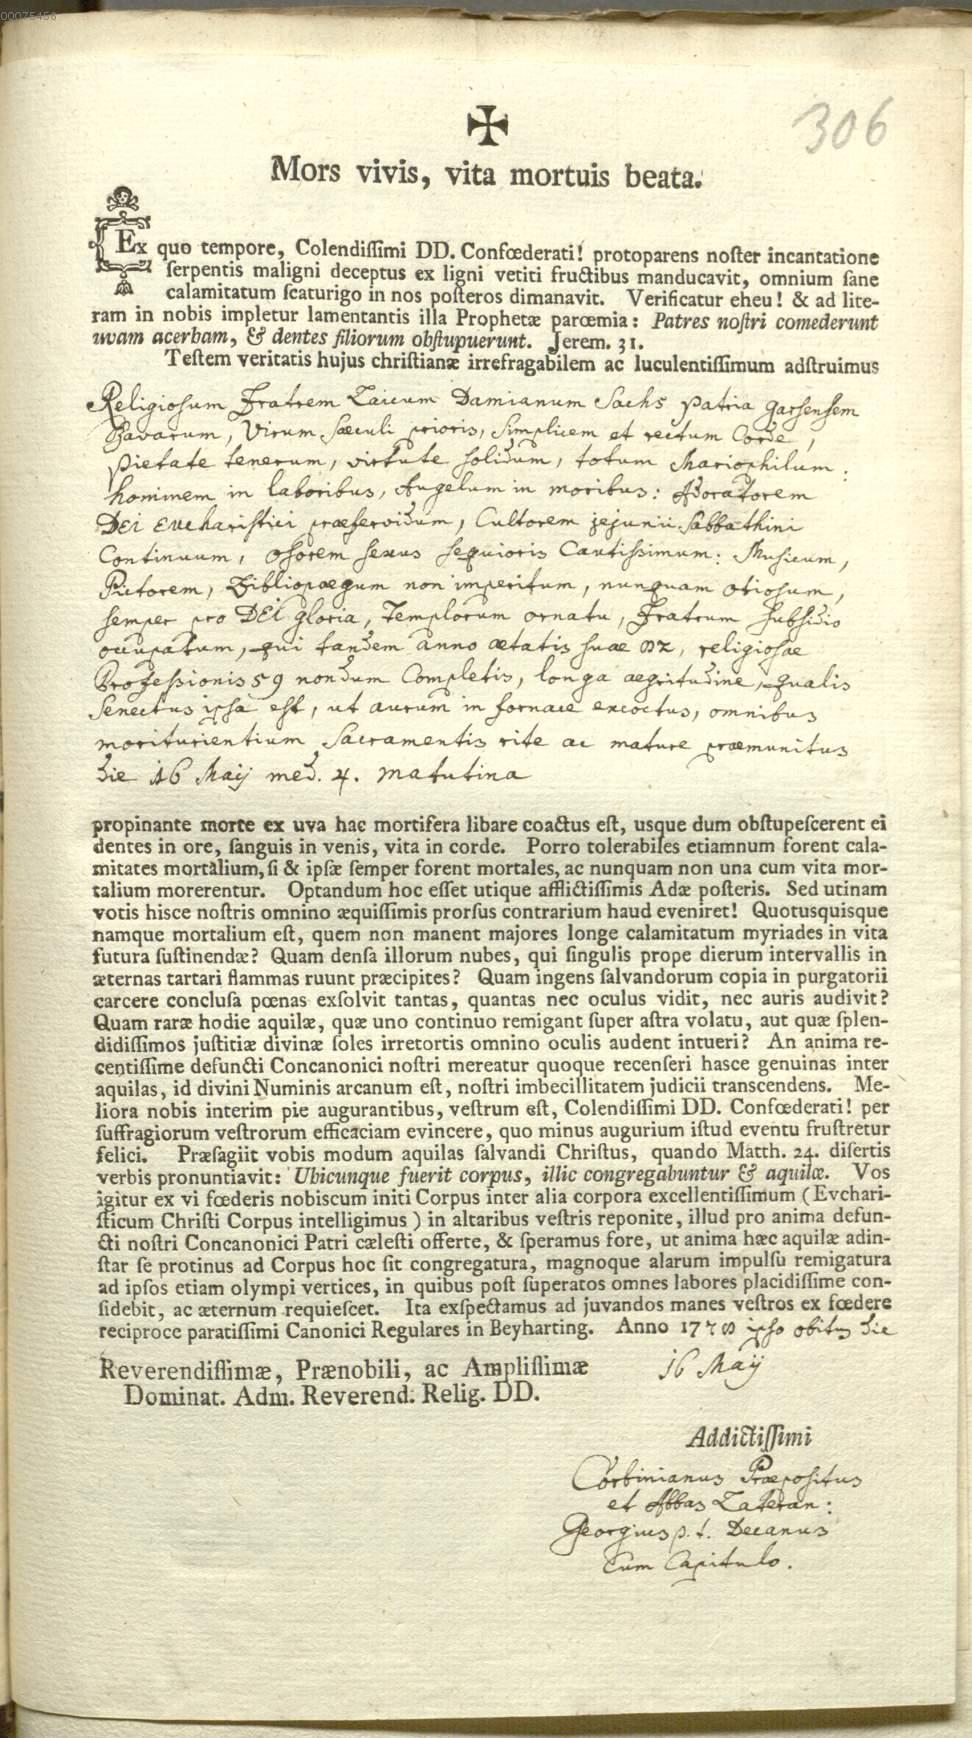 00075456
306
Mors vivis, vita mortuis beata.
Ex quo tempore, Colendiſſimi DD. Confœderati! protoparens noſter incantatione
ſerpentis maligni deceptus ex ligni vetiti fructibus manducavit, omnium ſane
calamitatum ſcaturigo in nos poſteros dimanavit. Verificatur eheu! & ad lite-
ram in nobis impletur lamentantis illa Prophetæ parœmia: Patres noſtri comederunt
uvam acerbam, & dentes filiorum obſtupuerunt. Jerem. 31.
Teſtem veritatis hujus chriſtianæ irrefragabilem ac luculentiſſimum adſtruimus
Religiosum Fratrem Laicum Damianum Sachs patria Garsensem
Bavarum, Virum sæculi prioris, simplicem et rectum Corde,
pietate tenerum, virtute solidum, totum Mariophilum:
hominem in laboribus, Angelum in moribus: Adoratorem
DEI Eucharistici præfervidum, Cultorem jejunii Sabbathini
Continuum, osorem sexus sequioris Cautissimum: Musicum,
Pictorem, Bibliopægum non imperitum, nunquam otiosum,
semper pro DEI gloria, Templorum ornatu, Fratrum subsidio
occupatum, qui tandem anno ætatis suae 82, religiosae
Professionis 59 nondum Completis, longa aegritudine, qualis
Senectus ipsa est, ut aurum in fornace excoctus, omnibus
moriturientium Sacramentis rite ac mature præmunitus
die 16 Maij med. 4. matutina
propinante morte ex uva hac mortifera libare coactus eſt, usque dum obſtupeſcerent ei
dentes in ore, ſanguis in venis, vita in corde. Porro tolerabiles etiamnum forent cala-
mitates mortalium, ſi & ipſæ ſemper forent mortales, ac nunquam non una cum vita mor-
talium morerentur. Optandum hoc eſſet utique afflictiſſimis Adæ poſteris. Sed utinam
votis hisce noſtris omnino æquiſſimis prorſus contrarium haud eveniret! Quotusquisque
namque mortalium eſt, quem non manent majores longe calamitatum myriades in vita
futura ſuſtinendæ? Quam denſa illorum nubes, qui ſingulis prope dierum intervallis in
æternas tartari flammas ruunt præcipites? Quam ingens ſalvandorum copia in purgatorii
carcere concluſa pœnas exſolvit tantas, quantas nec oculus vidit, nec auris audivit?
Quam raræ hodie aquilæ, quæ uno continuo remigant ſuper aſtra volatu, aut quæ ſplen-
didiſſimos juſtitiæ divinæ ſoles irretortis omnino oculis audent intueri? An anima re-
centiſſime defuncti Concanonici noſtri mereatur quoque recenſeri hasce genuinas inter
aquilas, id divini Numinis arcanum eſt, noſtri imbecillitatem judicii transcendens. Me-
liora nobis interim pie augurantibus, veſtrum eſt, Colendiſſimi DD. Confœderati! per
ſuffragiorum veſtrorum efficaciam evincere, quo minus augurium iſtud eventu fruſtretur
felici. Præſagiit vobis modum aquilas ſalvandi Chriſtus, quando Matth. 24. diſertis
verbis pronuntiavit: Ubicunque fuerit corpus, illic congregabuntur & aquilæ. Vos
igitur ex vi fœderis nobiscum initi Corpus inter alia corpora excellentiſſimum (Evchari-
ſticum Chriſti Corpus intelligimus) in altaribus veſtris reponite, illud pro anima defun-
cti noſtri Concanonici Patri cæleſti offerte, & ſperamus fore, ut anima hæc aquilæ adin-
ſtar ſe protinus ad Corpus hoc ſit congregatura, magnoque alarum impulſu remigatura
ad ipſos etiam olympi vertices, in quibus poſt ſuperatos omnes labores placidiſſime con-
ſidebit, ac æternum requieſcet. Ita exſpectamus ad juvandos manes veſtros ex fœdere
reciproce paratiſſimi Canonici Regulares in Beyharting. Anno 1778 ipso obitus die
16 Maij
Reverendiſſimæ, Prænobili, ac Ampliſſimæ
Dominat. Adm. Reverend. Relig. DD.
Addictiſſimi
Corbinianus Præpositus
et Abbas Lateran:
Georgius p. t. Decanus
Cum Capitulo.